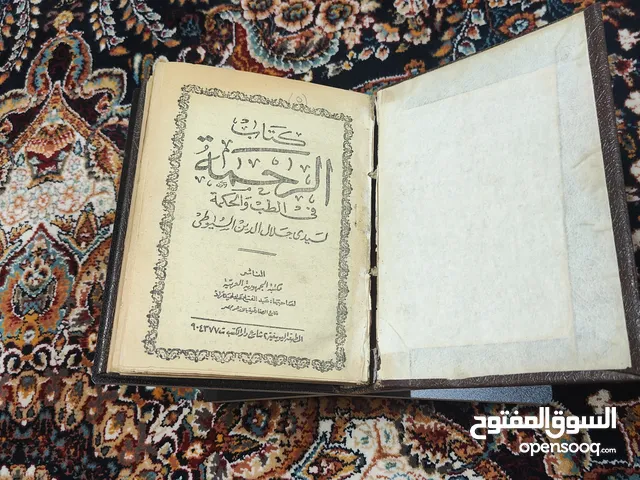 (٥)
كتاب
الرحمة
في الطب والحكمة
لسيدى جلال الدين السيوطى
الناشر
مكتبة الجمهورية العربية
لصاحبها عبد الفتاح
بمصر
٩٠٤٣٧٧
السوق المفتوح
opensooq.com